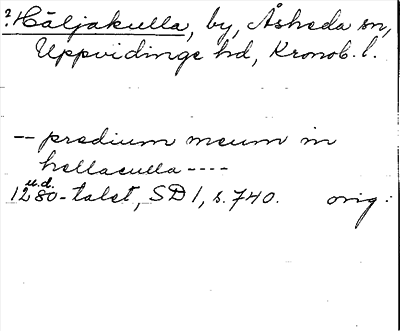 ?Häljakulla, by, Åsheda sn,
Uppvidinge hd, Kronob. l.
-- predium meum in
hellaculla ----
u. d.
1280-talet, SD 1, s. 740. orig: